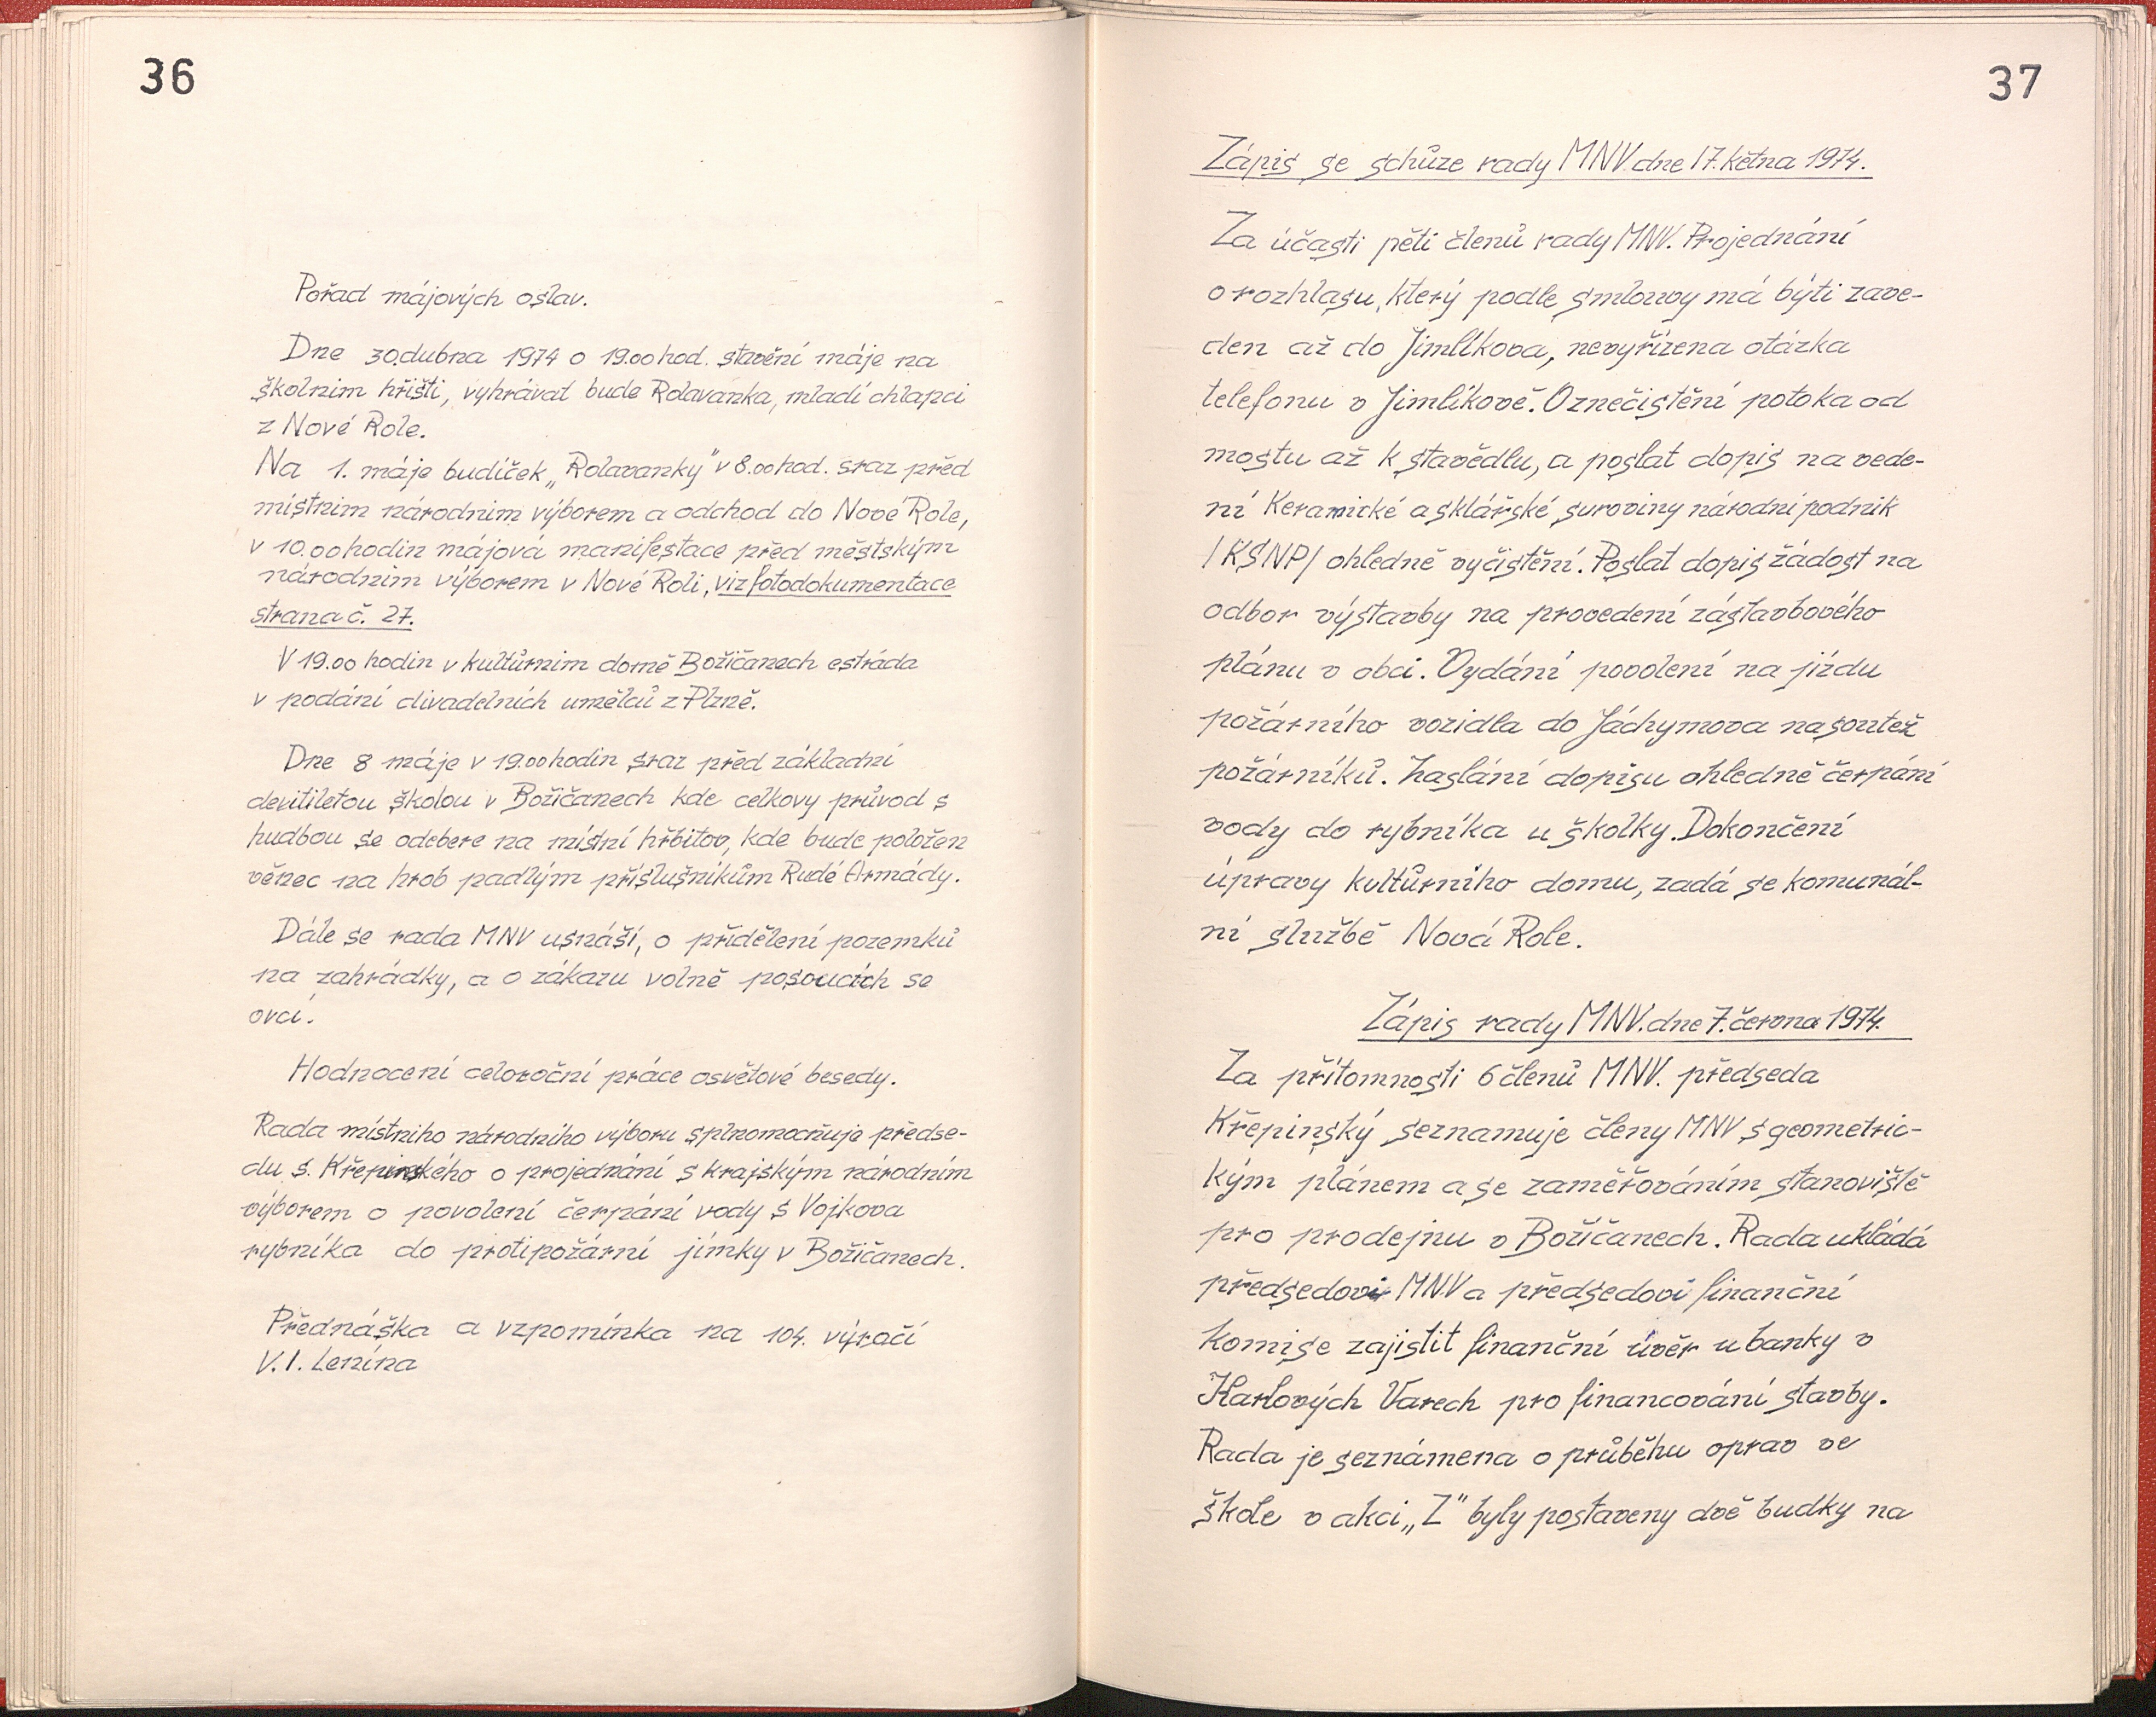 36
Pořad májových oslav.
Dne 30.dubna 1974 o 19.00 hod. stavění máje na
školnim hřišti, vyhrávat bude Rolavanka, mladí chlapci
z Nové Role.
Na 1. máje budíček „Rolavanky" v 8.00 hod. sraz před
místnim národnim výborem a odchod do Nové Role,
v 10.00 hodin májová manifestace před městským
národnim výborem v Nové Roli, viz fotodokumentace
strana č. 27.
V 19.00 hodin v kultůrnim domě Božičanech estráda
v podání divadelních umělců z Plzně.
Dne 8 máje v 19.00 hodin sraz před základní
devitiletou školou v Božičanech kde celkovy průvod s
hudbou se odebere na místní hřbitov, kde bude položen
věnec na hrob padlým příslušníkům Rudé Armády.
Dále se rada MNV usnáší, o přidělení pozemků
na zahrádky, a o zákazu volně posoucích se
ovcí.
Hodnocení celoroční práce osvětové besedy.
Rada místniho národního výboru splnomocňuje předse-
du s. Křepinského o projednání s krajským národním
výborem o povolení čerpání vody s Vojkova
rybníka do protipožární jímky v Božičanech.
Přednáška a vzpomínka na 104. výročí
V. I. Lenina
37
Zápis se schůze rady MNV. dne 17. kětna 1974.
Za účasti pěti členů rady MNV. Projednání
o rozhlasu, který podle smlouvy má býti zave-
den až do Jimlíkova, nevyřízena otázka
telefonu v Jimlíkově. O znečistění potoka od
mostu až k stavědlu, a poslat dopis na vede-
ní Keramické a sklářské suroviny národní podnik
/KSNP/ ohledně vyčistění. Poslat dopis žádost na
odbor výstavby na provedení zástavbového
plánu v obci. Vydání povolení na jízdu
požárního vozidla do Jáchymova na soutež
požárníků. Zaslání dopisu ohledně čerpání
vody do rybníka u školky. Dokončení
úpravy kultůrního domu, zadá se komunál-
ní službě Nová Role.
Zápis rady MNV. dne 7. června 1974.
Za přítomnosti 6 členů MNV. předseda
Křepinský seznamuje členy MNV s geometric-
kým plánem a se zaměřováním stanoviště
pro prodejnu v Božíčanech. Rada ukládá
předsedovi MNV a předsedovi finanční
komise zajistit finanční úvěr u banky v
Karlových Varech pro financování stavby.
Rada je seznámena o průběhu oprav ve
škole v akci „Z" byly postaveny dvě budky na